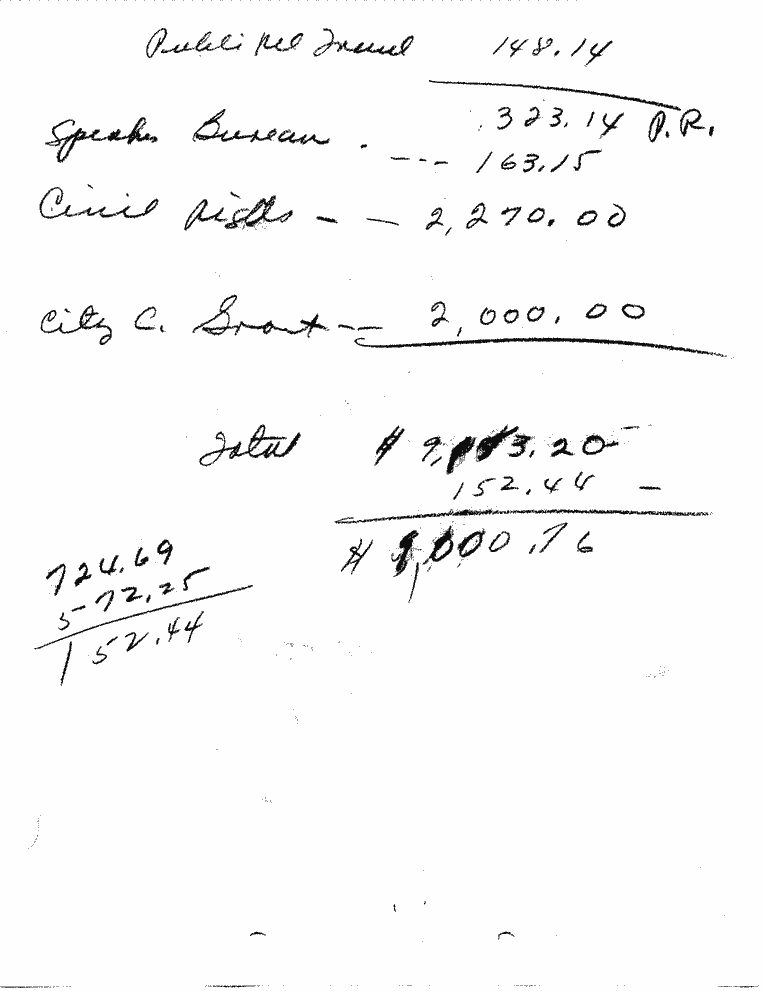 148.14
323.14 P.R.
Speaker Bureau .
--- 163.15
Civil Rights - - 2,270.00
City C. Grant -- 2,000.00
Total $ 3.20 -
152.44 -
$ 000.76
724.69
572.25
152.44